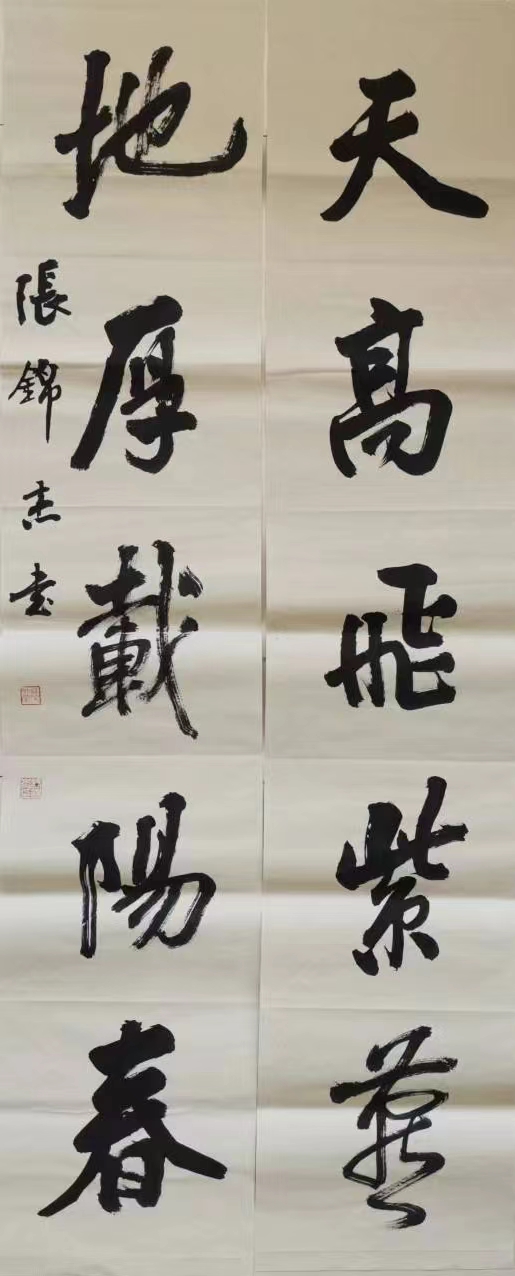 天高飛紫燕
地厚載陽春
張錦杰書